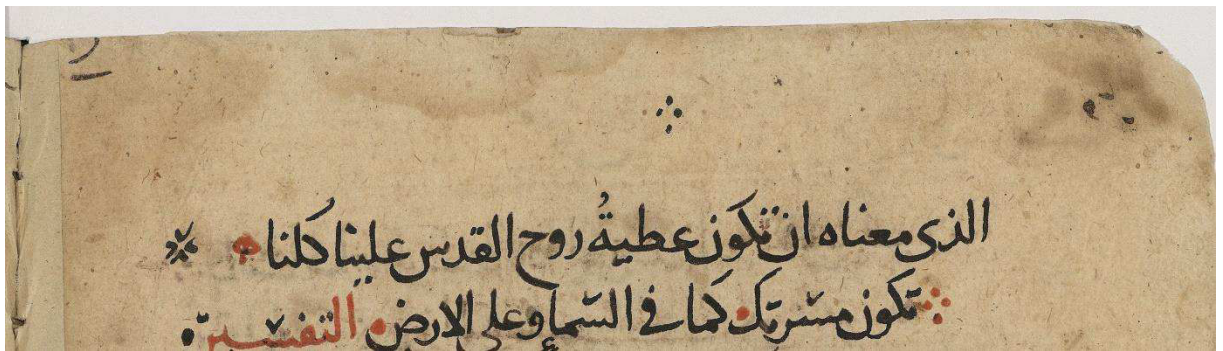 الذى معناه ان تكون عطيةُ روح القدس علينا كلنا
تكون مشيتك كما فى السما وعلى الارض التفسير